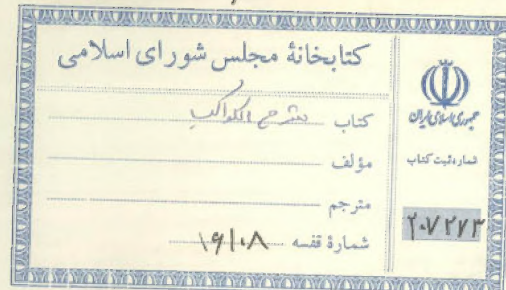 کتابخانهٔ مجلس شورای اسلامی
کتاب شرح الکواکب
مؤلف
مترجم
شمارهٔ قفسه ۱۶۱۰۸
جمهوری اسلامی ایران
شماره ثبت کتاب
۲۰۷۲۷۳